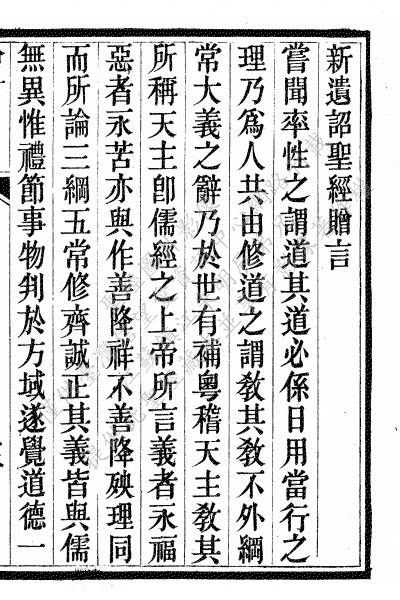 新遺詔聖經贈言
嘗聞率性之謂道其道必係日用當行之
理乃爲人共由修道之謂敎其敎不外綱
常大義之辭乃於世有補粵稽天主敎其
所稱天主卽儒經之上帝所言義者永福
惡者永苦亦與作善降祥不善降殃理同
而所論三綱五常修齊誠正其義皆與儒
無異惟禮節事物判於方域遂覺道德一